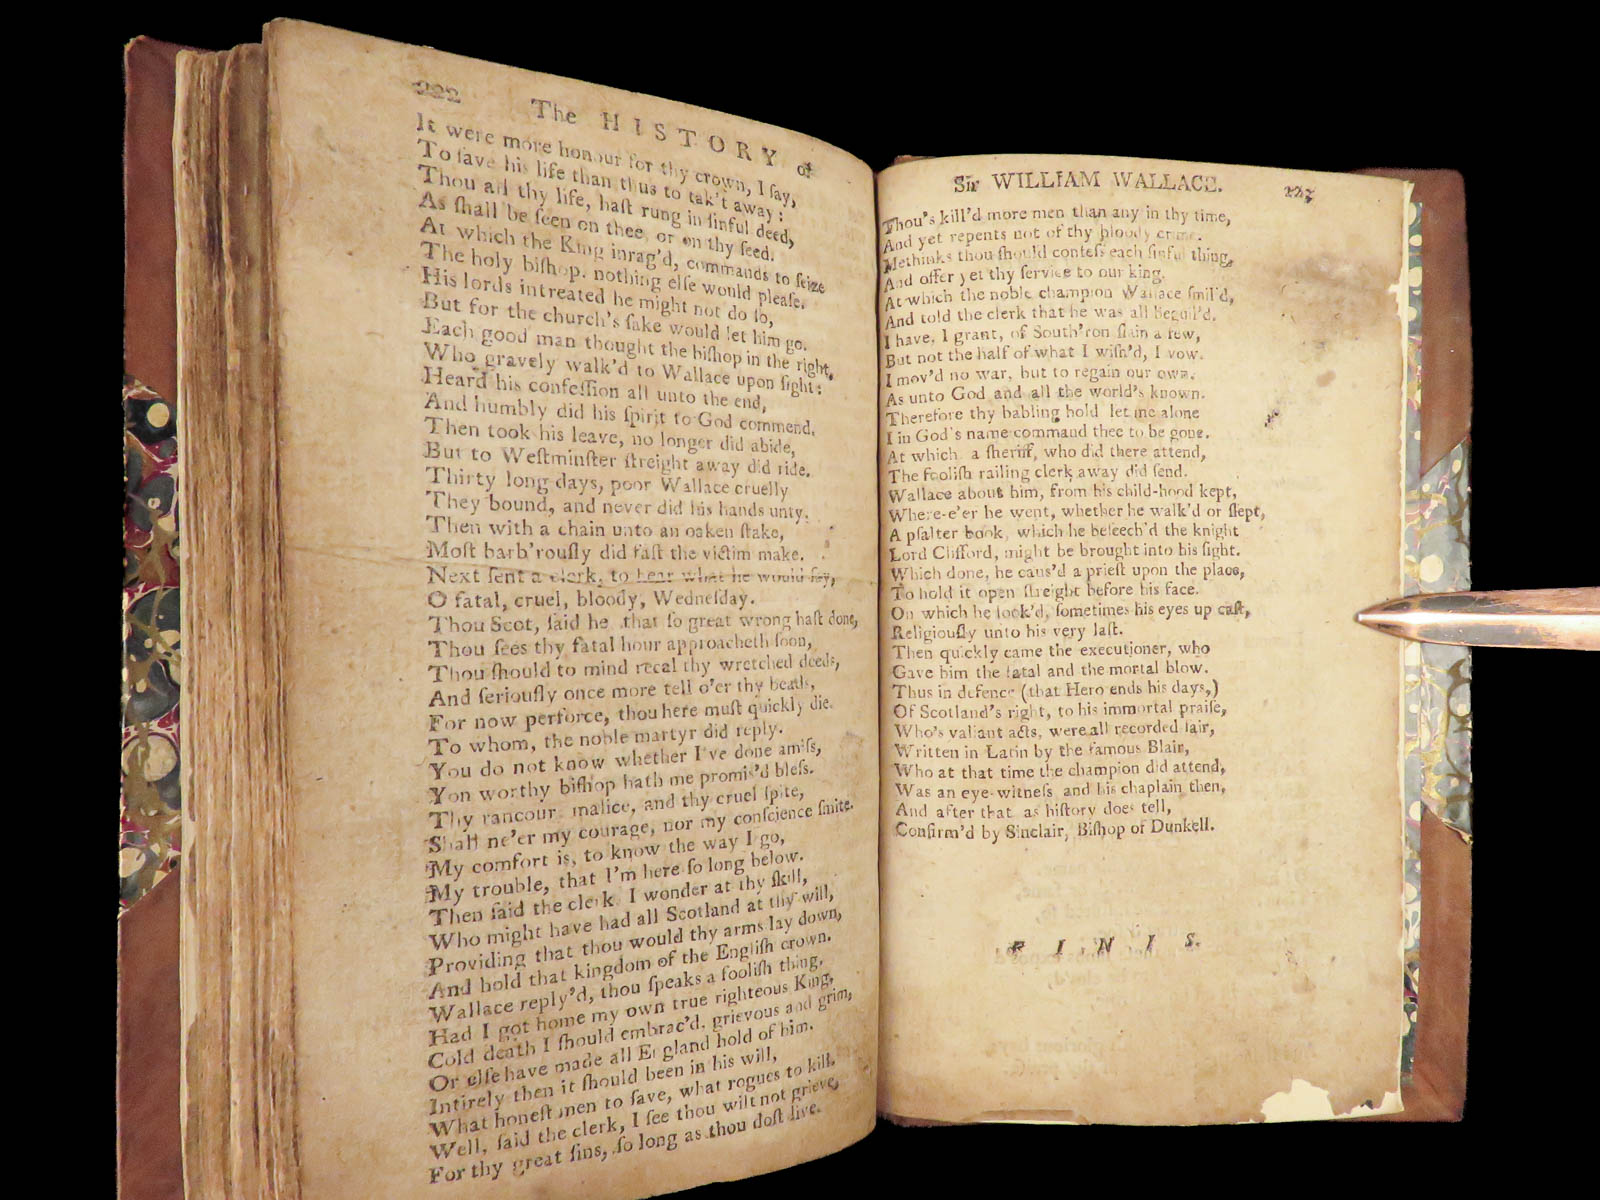 222
The HISTORY of
It were more honour for thy crown, I ſay,
To ſave his life than thus to tak't away:
Thou all thy life, haſt rung in ſinful deed,
As ſhall be ſeen on thee, or on thy ſeed.
At which the King inrag'd, commands to ſeize
The holy biſhop. nothing elſe would pleaſe.
His lords intreated he might not do ſo,
But for the church's ſake would let him go.
Each good man thought the biſhop in the right,
Who gravely walk'd to Wallace upon ſight:
Heard his confeſſion all unto the end,
And humbly did his ſpirit to God commend.
Then took his leave, no longer did abide,
But to Weſtminſter ſtreight away did ride.
Thirty long days, poor Wallace cruelly
They bound, and never did his hands unty.
Then with a chain unto an oaken ſtake,
Moſt barb'rouſly did faſt the victim make.
Next ſent a clerk, to hear what he would ſay,
O fatal, cruel, bloody, Wedneſday.
Thou Scot, ſaid he that ſo great wrong haſt done,
Thou ſees thy fatal hour approacheth ſoon,
Thou ſhould to mind recal thy wretched deeds,
And ſeriouſly once more tell o'er thy beads,
For now perforce, thou here muſt quickly die.
To whom, the noble martyr did reply.
You do not know whether I've done amiſs,
Yon worthy biſhop hath me promis'd bleſs.
Thy rancour malice, and thy cruel ſpite,
Shall ne'er my courage, nor my conſcience ſmite.
My comfort is, to know the way I go,
My trouble, that I'm here ſo long below.
Then ſaid the clerk I wonder at thy ſkill,
Who might have had all Scotland at thy will,
Providing that thou would thy arms lay down,
And hold that kingdom of the Engliſh crown.
Wallace reply'd, thou ſpeaks a fooliſh thing,
Had I got home my own true righteous King,
Cold death I ſhould embrac'd, grievous and grim,
Or elſe have made all England hold of him.
Intirely then it ſhould been in his will,
What honeſt men to ſave, what rogues to kill.
Well, ſaid the clerk, I ſee thou wilt not grieve,
For thy great ſins, ſo long as thou doſt live.
Sir WILLIAM WALLACE.
Thou's kill'd more men than any in thy time,
And yet repents not of thy bloody crime.
Methinks thou ſhould confeſs each ſinful thing,
And offer yet thy ſervice to our king.
At which the noble champion Wallace ſmil'd,
And told the clerk that he was all beguil'd.
I have, I grant, of South'ron ſlain a few,
But not the half of what I wiſh'd, I vow.
I mov'd no war, but to regain our own.
As unto God and all the world's known.
Therefore thy babling hold let me alone
I in God's name command thee to be gone.
At which a ſheriff, who did there attend,
The fooliſh railing clerk away did ſend.
Wallace about him, from his child-hood kept,
Where-e'er he went, whether he walk'd or ſlept,
A pſalter book, which he beſeech'd the knight
Lord Clifford, might be brought into his ſight.
Which done, he caus'd a prieſt upon the place,
To hold it open ſtreight before his face.
On which he look'd, ſometimes his eyes up caſt,
Religiouſly unto his very laſt.
Then quickly came the executioner, who
Gave him the fatal and the mortal blow.
Thus in defence (that Hero ends his days,)
Of Scotland's right, to his immortal praiſe,
Who's valiant acts, were all recorded fair,
Written in Latin by the famous Blair,
Who at that time the champion did attend,
Was an eye-witneſs and his chaplain then,
And after that as hiſtory does tell,
Confirm'd by Sinclair, Biſhop of Dunkell.
FINIS.